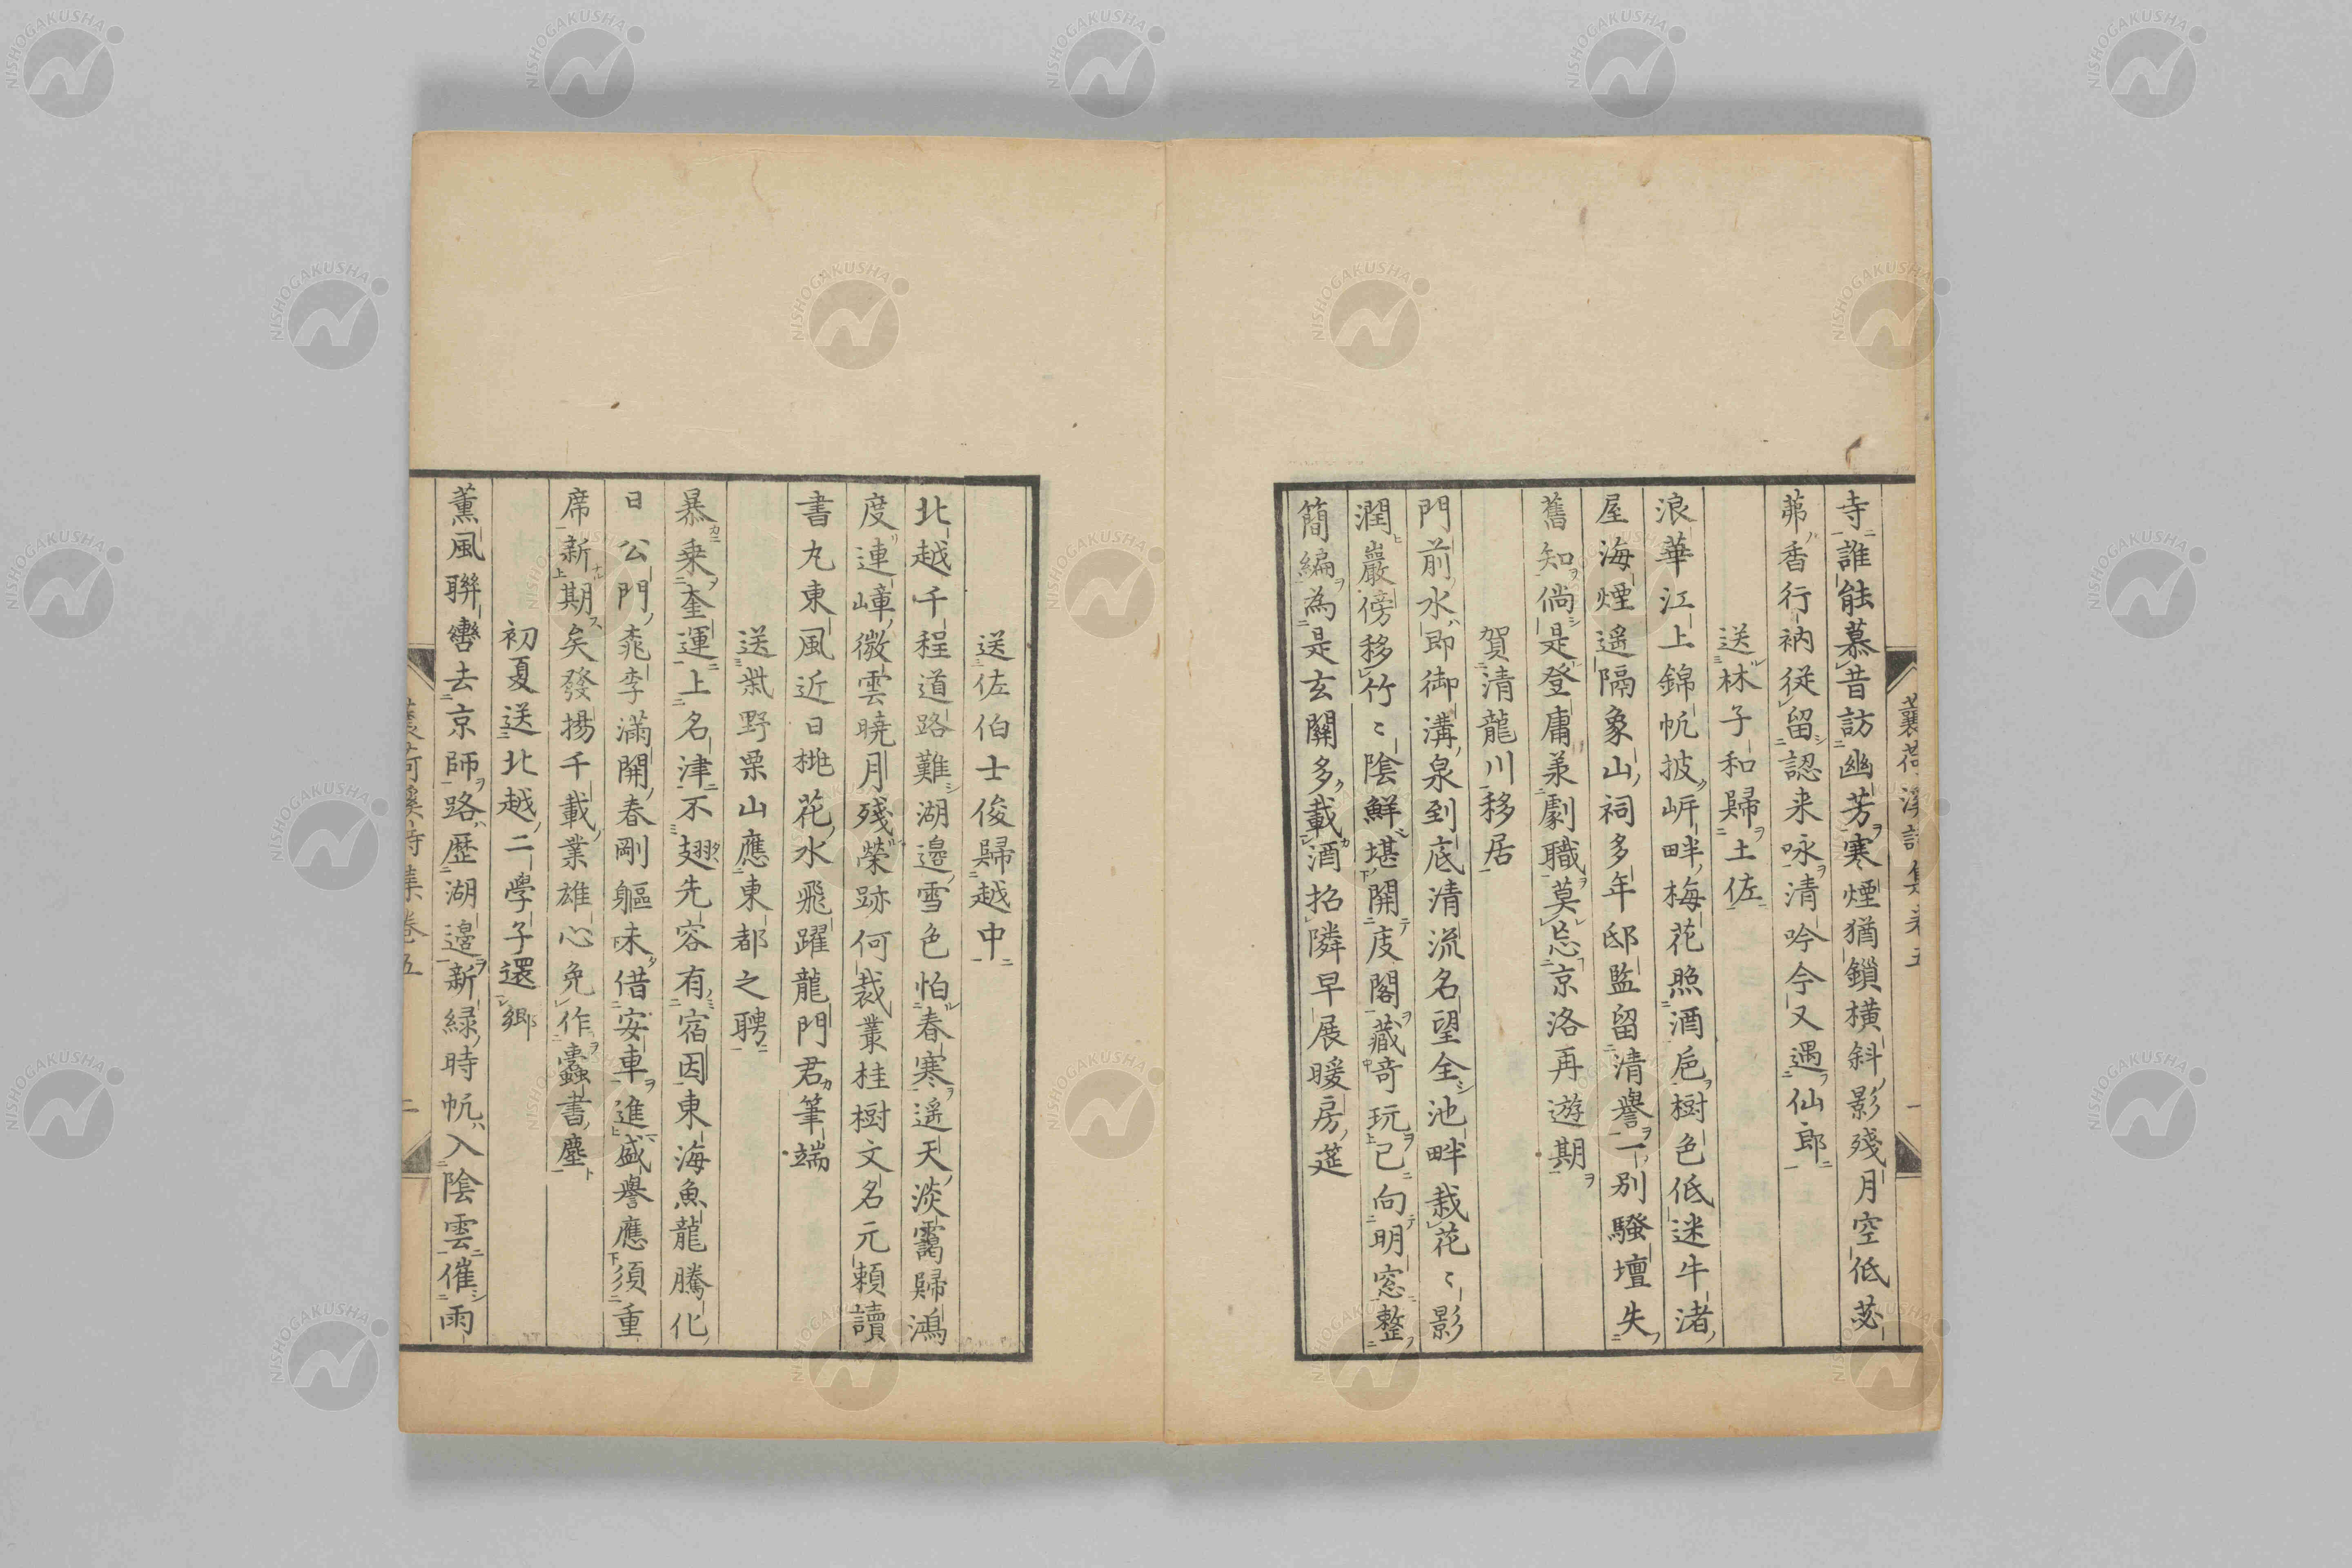 蘘荷溪詩集卷五
一
寺誰能慕昔訪幽芳寒煙猶鎖横斜影殘月空低苾
茀香行衲従留認来咏清吟今又遇仙郎
送林子和歸土佐
浪華江上錦帆披岍畔梅花照酒巵樹色低迷牛渚
屋海煙遥隔象山祠多年邸監留清譽一別騷壇失
舊知倘是登庸兼劇職莫忘京洛再遊期
賀清龍川移居
門前水即御溝泉到底清流名望全池畔栽花〻影
潤巖傍移竹〻陰鮮堪開庋閣藏竒玩已向明窓整
簡編為是玄關多載酒招隣早展暖房莚
送佐伯士俊歸越中
北越千程道路難湖邉雪色怕春寒遥天淡靄歸鴻
度連嶂微雲曉月殘榮跡何裁叢桂樹文名元頼讀
書丸東風近日桃花水飛躍龍門君筆端
送柴野栗山應東都之聘
暴乗奎運上名津不翅先容有宿因東海魚龍騰化
日公門桃李滿開春剛軀未借安車進盛譽應須重
席新期矣發揚千載業雄心免作蠹書塵
初夏送北越二學子還郷
薫風聯轡去京師路歴湖邉新緑時帆入陰雲催雨
蘘荷溪詩集卷五
二
NISHOGAKUSHA